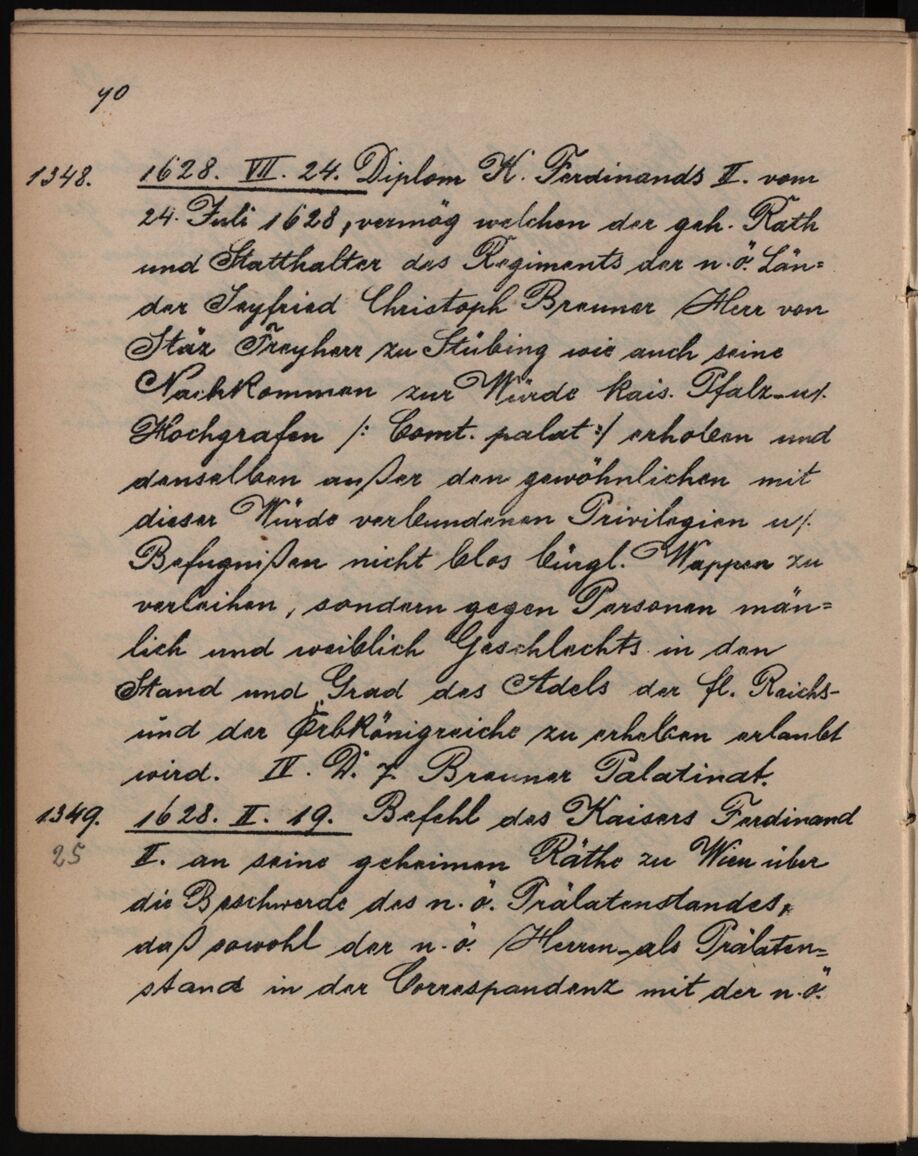 40
1348. 1628. VII. 24. Diplom K. Ferdinands II. vom
24. Juli 1628, vermög welchen der geh. Rath
und Statthalter des Regiments der n. ö. Län=
der Seyfried Christoph Breuner Herr von
Stäz Freyherr zu Stübing wie auch seine
Nachkommen zur Würde kais. Pfalz- u/.
Hochgrafen /: Comt. palat :/ erhoben und
denselben außer den gewöhnlichen mit
dieser Würde verbundenen Privilegien u/.
Befugnißen nicht blos bürgl. Wappen zu
verleihen, sondern gegen Personen män=
lich und weiblich Geschlechts in den
Stand und Grad des Adels der hl. Reichs-
und der Erbkönigreiche zu erheben erlaubt
wird. IV. D. 7 Breuner Palatinat.
1349. 1628. II. 19. Befehl des Kaisers Ferdinand
25 II. an seine geheimen Räthe zu Wien über
die Beschwerde des n. ö. Prälatenstandes,
daß sowohl der n. ö. Herren- als Prälaten=
stand in der Correspondenz mit der n. ö.